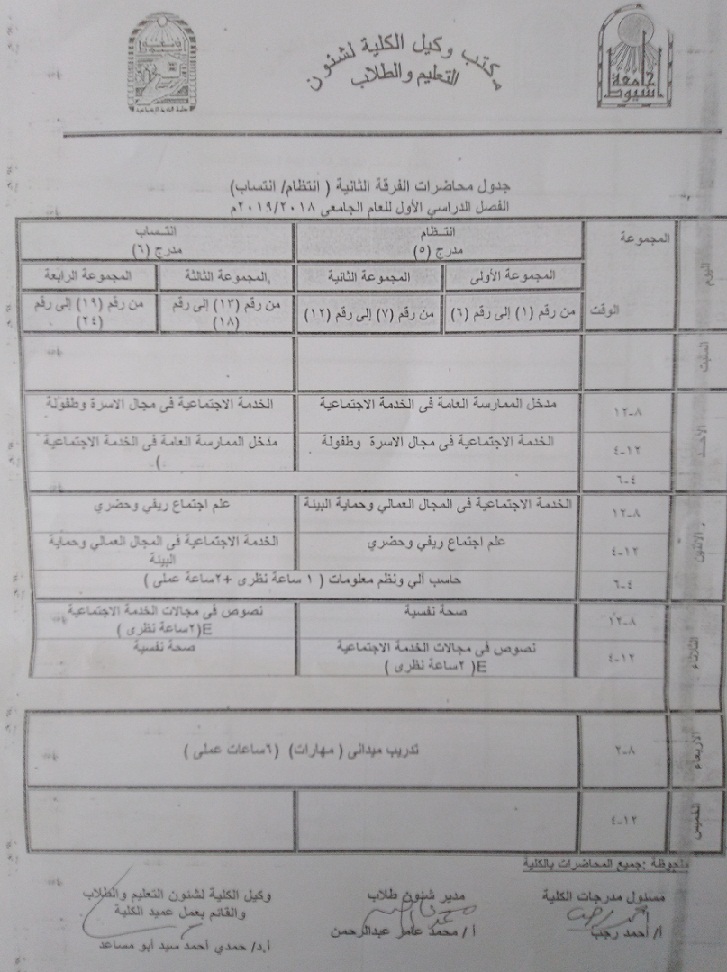 جامعة أسيوط
مكتب وكيل الكلية لشئون
التعليم والطلاب
جدول محاضرات الفرقة الثانية ( انتظام/ انتساب)
الفصل الدراسي الأول للعام الجامعى ٢٠١٩/٢٠١٨م
اليوم
المجموعة
الوقت
انتظام
مدرج (٥)
انتساب
مدرج (٦)
المجموعة الأولى
المجموعة الثانية
المجموعة الثالثة
المجموعة الرابعة
من رقم (١) إلى رقم (٦)
من رقم (٧) إلى رقم (١٢)
من رقم (١٣) إلى رقم (١٨)
من رقم (١٩) إلى رقم (٢٤)
السبت
الأحد
٨-١٢
مدخل الممارسة العامة فى الخدمة الاجتماعية
الخدمة الاجتماعية فى مجال الاسرة وطفولة
١٢-٤
الخدمة الاجتماعية فى مجال الاسرة وطفولة
مدخل الممارسة العامة فى الخدمة الاجتماعية
(
٤-٦
الاثنين
٨-١٢
الخدمة الاجتماعية فى المجال العمالي وحماية البيئة
علم اجتماع ريفي وحضري
١٢-٤
علم اجتماع ريفي وحضري
الخدمة الاجتماعية فى المجال العمالي وحماية
البيئة
٤-٦
حاسب ألي ونظم معلومات ( ١ ساعة نظرى +٢ساعة عملى )
الثلاثاء
٨-١٢
صحة نفسية
نصوص فى مجالات الخدمة الاجتماعية
E(٢ساعة نظرى )
١٢-٤
نصوص فى مجالات الخدمة الاجتماعية
E( ٢ساعة نظرى )
صحة نفسية
الأربعاء
٨-٢
تدريب ميدانى ( مهارات) (٦ساعات عملى )
الخميس
١٢-٤
ملحوظة :جميع المحاضرات بالكلية
مسئول مدرجات الكلية
أ/ أحمد رجب
مدير شئون طلاب
أ / محمد عامر عبدالرحمن
وكيل الكلية لشئون التعليم والطلاب
والقائم بعمل عميد الكلية
أ.د/ حمدي أحمد سيد أبو مساعد